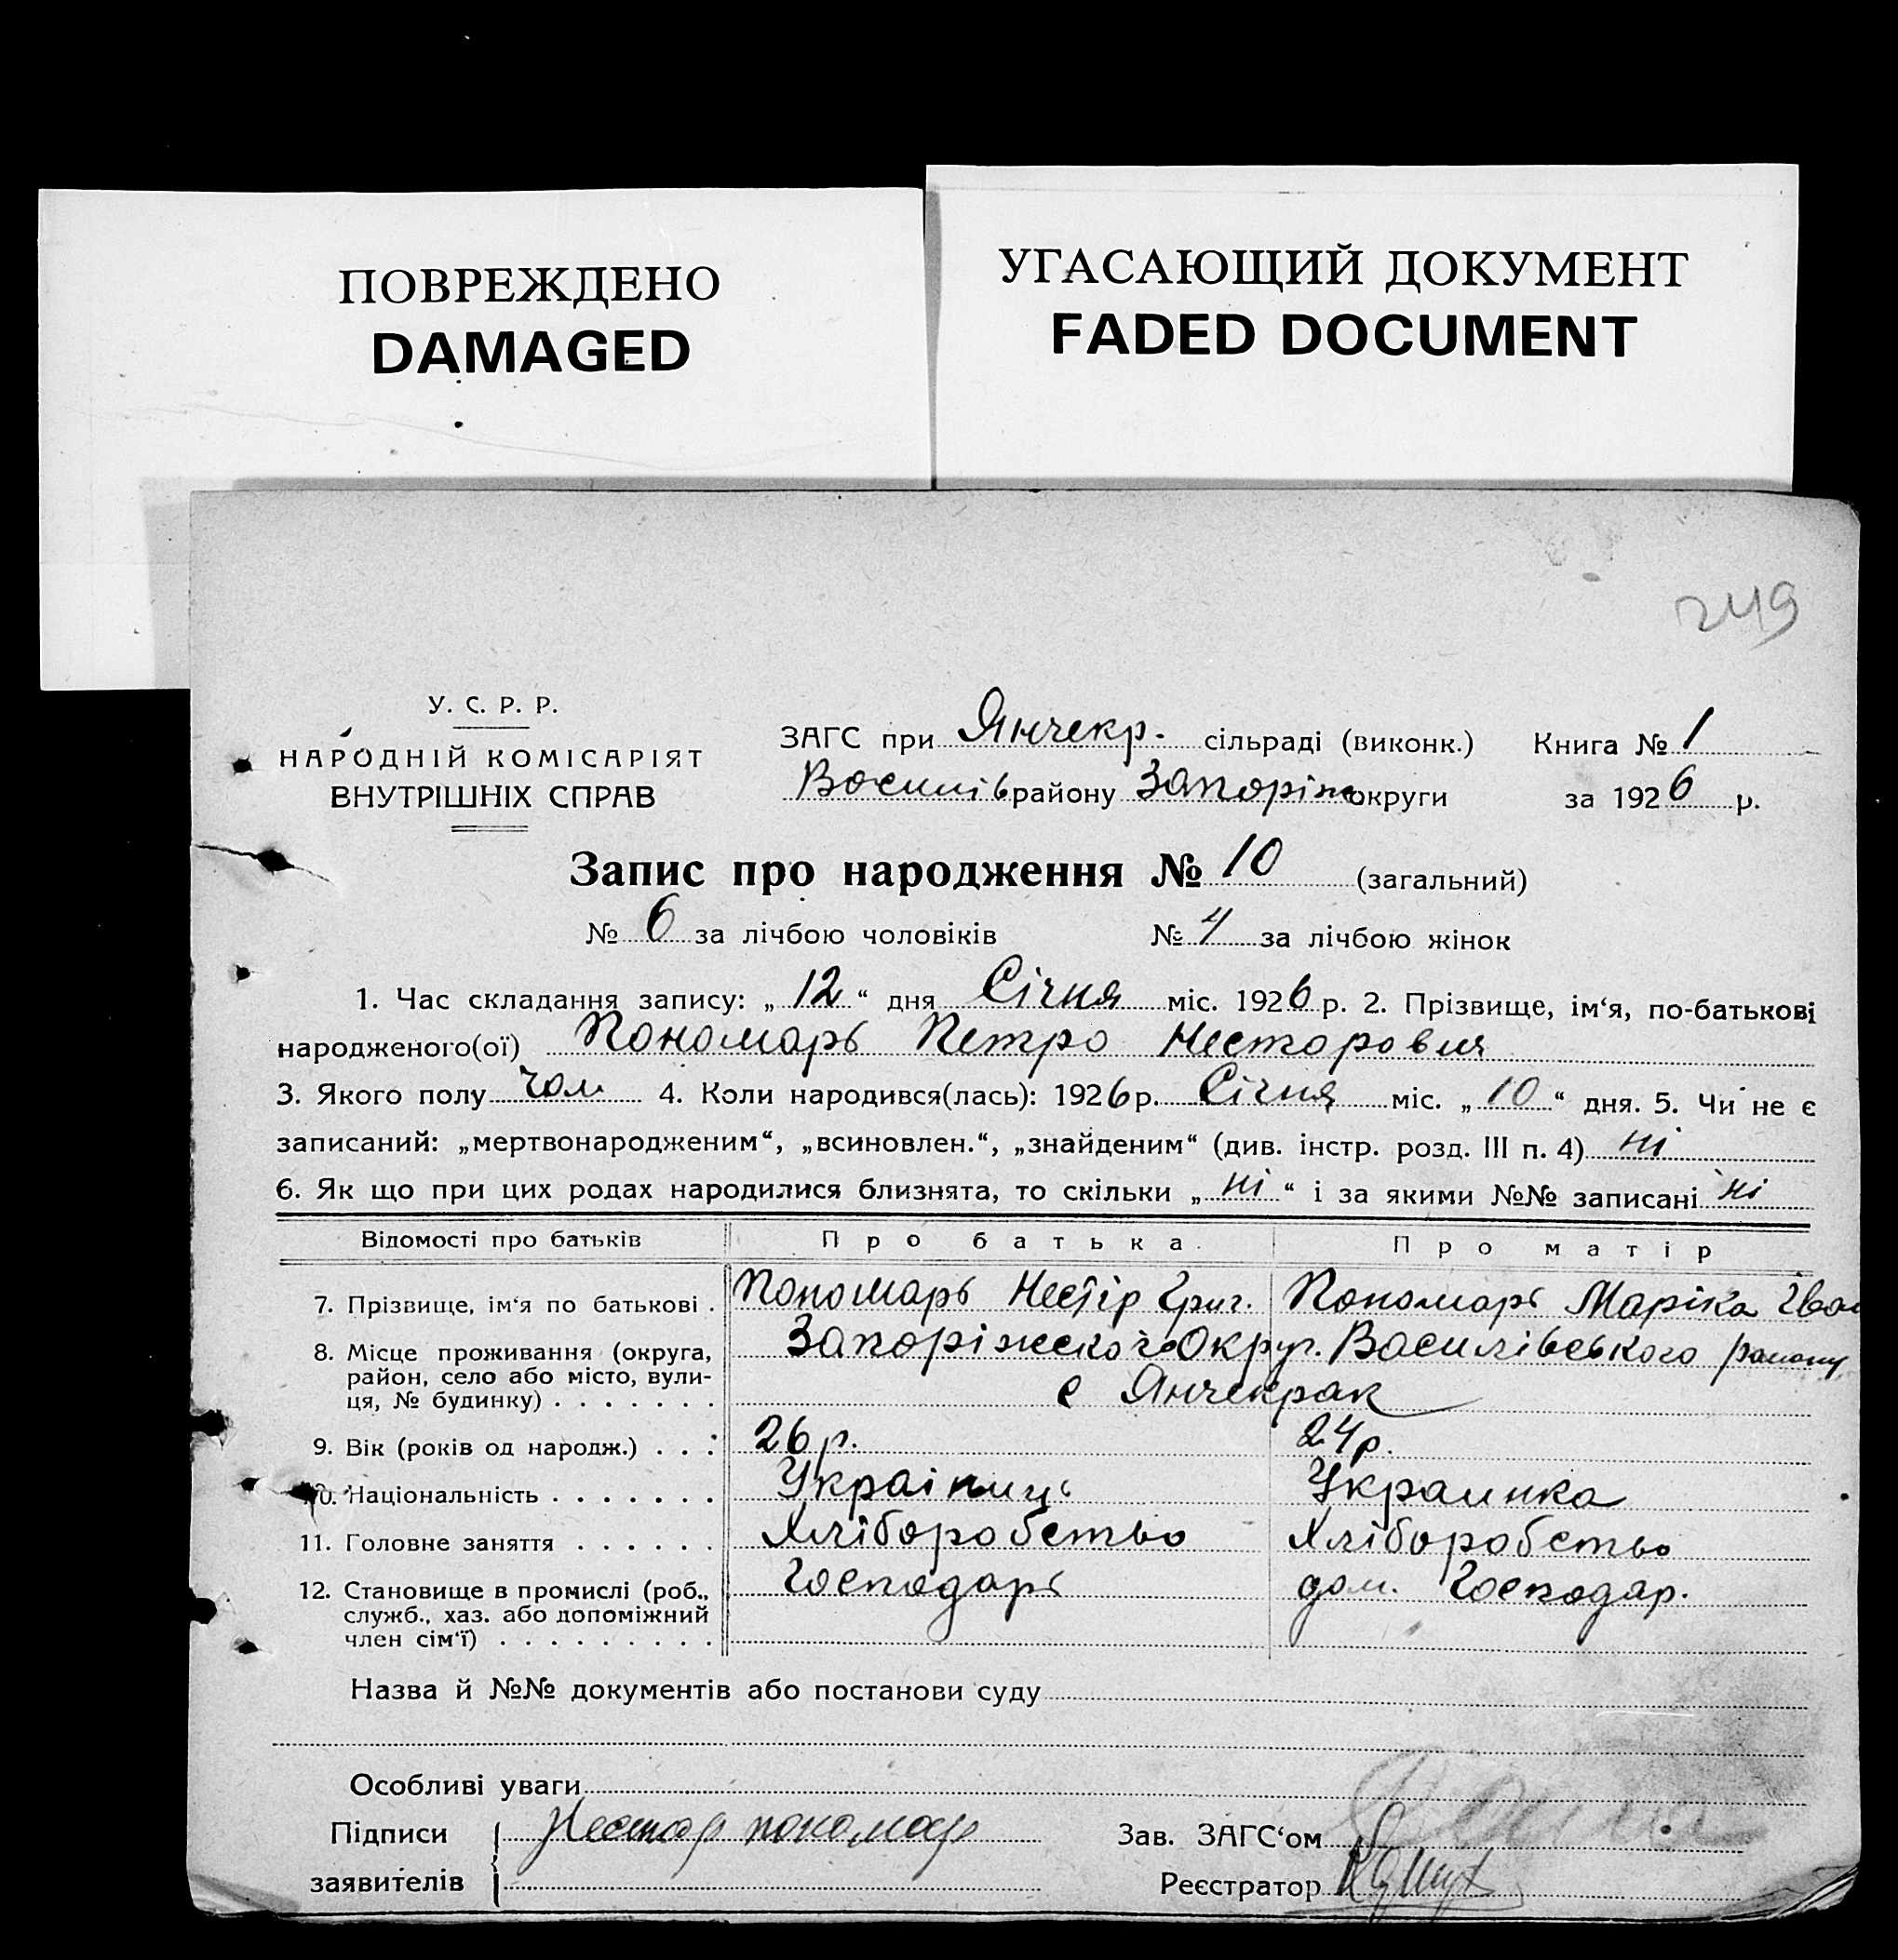 ПОВРЕЖДЕНО
DAMAGED
УГАСАЮЩИЙ ДОКУМЕНТ
FADED DOCUMENT
249
У. С. Р. Р.
НАРОДНІЙ КОМІСАРІЯТ
ВНУТРІШНІХ СПРАВ
ЗАГС при Янчекр. сільраді (виконк.) Книга № 1
Василів району Запоріж округи за 1926 р.
Запис про народження № 10 (загальний)
№ 6 за лічбою чоловіків № 4 за лічбою жінок
1. Час складання запису: „12“ дня Січня міс. 1926 р. 2. Прізвище, ім‘я, по-батькові
народженого(ої) Пономарь Петро Несторовия
3. Якого полу чол 4. Коли народився(лась): 1926 р. Січня міс. „10“ дня. 5. Чи не є
записаний: „мертвонародженим“, „всиновлен.“, „знайденим“ (див. інстр. розд. III п. 4) ні
6. Як що при цих родах народилися близнята, то скільки „ні“ і за якими №№ записані ні
Відомості про батьків Про батька. Про матір
7. Прізвище, ім‘я по батькові . Пономарь Нестір Григ. Пономарь Маріка Іван
8. Місце проживання (округа, Запоріжского Округ. Василівського району
район, село або місто, вули-
ця, № будинку) . . . . . . . с Янчекрак
9. Вік (років од народж.) . . . 26 р. 24 р.
10. Національність . . . . . . . Українць Украинка
11. Головне заняття . . . . . . Хліборобство Хліборобство
12. Становище в промислі (роб., Господарь дом. Господар.
служб., хаз. або допоміжний
член сім‘ї) . . . . . . . . .
Назва й №№ документів або постанови суду
Особливі уваги
Підписи Нестор пономар Зав. ЗАГС‘ом
заявителів Реєстратор